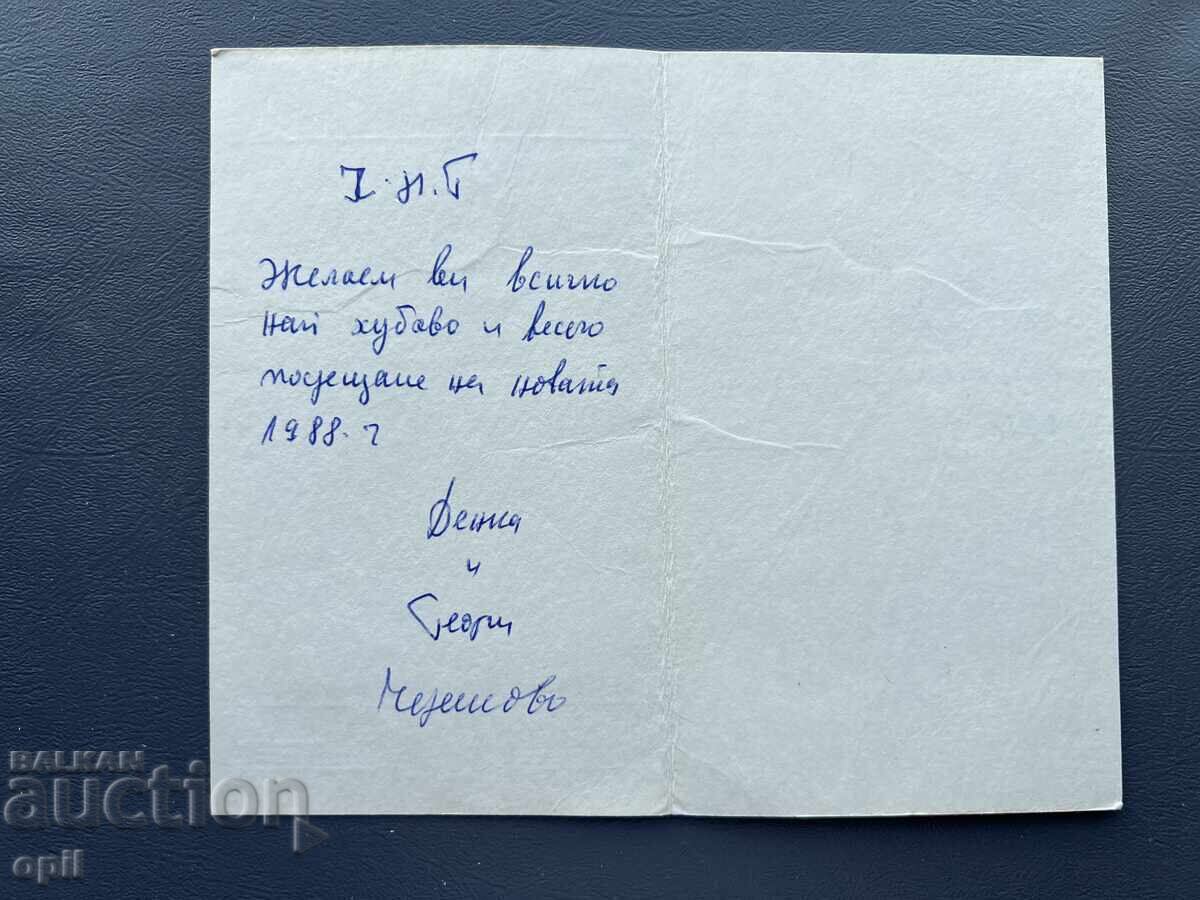 Ч.Н.Г
Желаем ви всичко
най хубаво и весело
посрещане на новата
1988 г
Денка
и
Георги
BALKAN
auction
opil